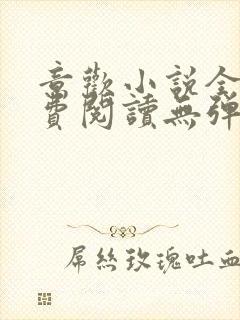 音歡小說全
費閱讀無彈
屌絲玫瑰吐血